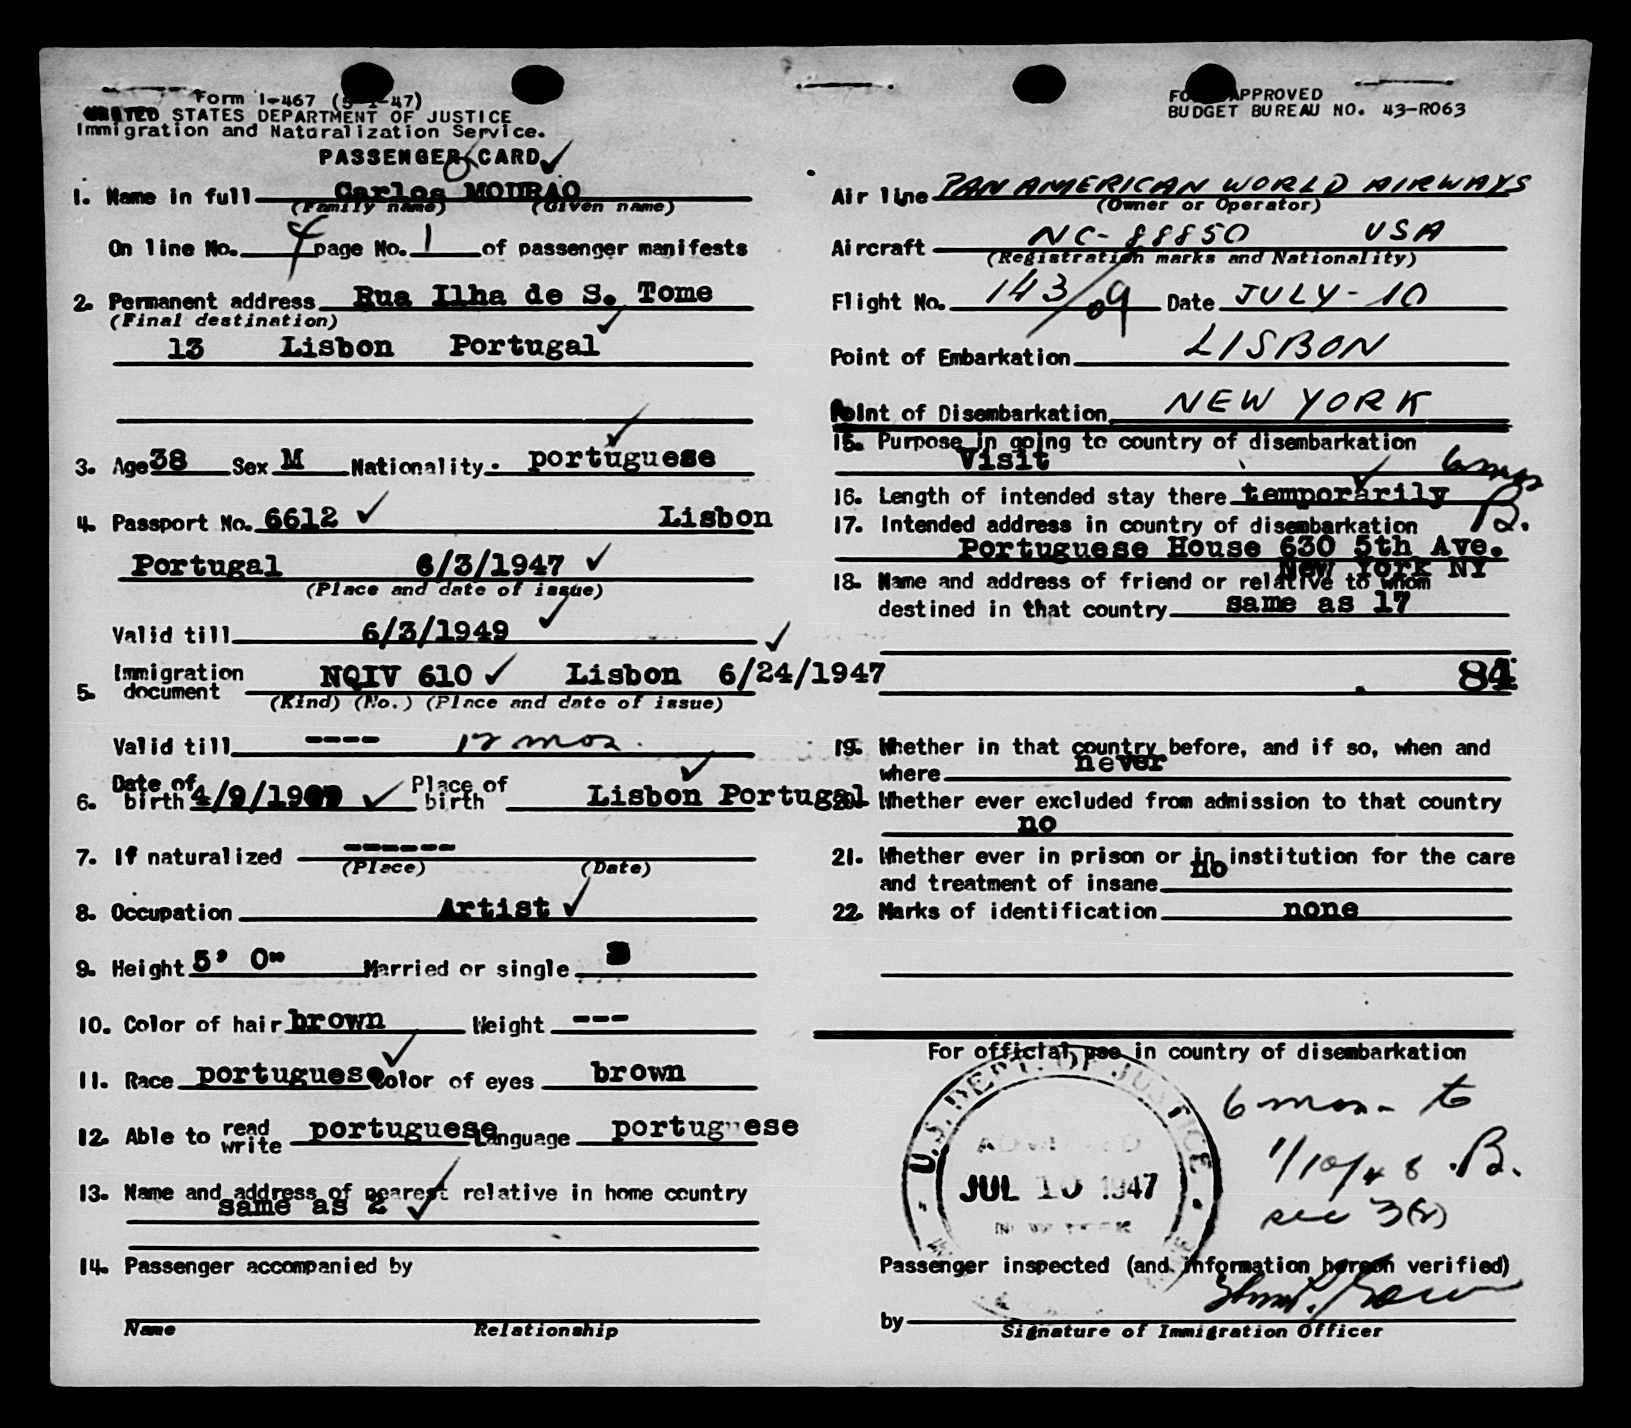 Form I-467 (5-1-47)
UNITED STATES DEPARTMENT OF JUSTICE
Immigration and Naturalization Service.
PASSENGER CARD
1. Name in full Carlos MOURAO
(Family name) (Given name)
On line No. 4 page No. 1 of passenger manifests
2. Permanent address Rua Ilha de S. Tome
(Final destination)
13 Lisbon Portugal
3. Age 38 Sex M Nationality. portuguese
4. Passport No. 6612 Lisbon
Portugal 6/3/1947
(Place and date of issue)
Valid till 6/3/1949
5. Immigration document NQIV 610 Lisbon 6/24/1947
(Kind) (No.) (Place and date of issue)
Valid till ---- 12 mos.
6. Date of birth 4/9/19 Place of birth Lisbon Portugal
7. If naturalized ------
(Place) (Date)
8. Occupation Artist
9. Height 5' 0" Married or single
10. Color of hair brown Weight ---
11. Race portuguese Color of eyes brown
12. Able to read write portuguese Language portuguese
13. Name and address of nearest relative in home country
same as 2
14. Passenger accompanied by
Name Relationship
FORM APPROVED
BUDGET BUREAU NO. 43-R063
Air line PAN AMERICAN WORLD AIRWAYS
(Owner or Operator)
Aircraft NC-88850 USA
(Registration marks and Nationality)
Flight No. 143/09 Date JULY-10
Point of Embarkation LISBON
Point of Disembarkation NEW YORK
15. Purpose in going to country of disembarkation
Visit
6 mos
16. Length of intended stay there temporarily
B.
17. Intended address in country of disembarkation
Portuguese House 630 5th Ave.
New York NY
18. Name and address of friend or relative to whom
destined in that country same as 17
84
19. Whether in that country before, and if so, when and
where never
20. Whether ever excluded from admission to that country
no
21. Whether ever in prison or in institution for the care
and treatment of insane no
22. Marks of identification none
For official use in country of disembarkation
U.S. DEPT. OF JUSTICE
ADMITTED
JUL 10 1947
NEW YORK
6 mos - to
1/10/48 B.
sec 3(2)
Passenger inspected (and information hereon verified)
by
Signature of Immigration Officer